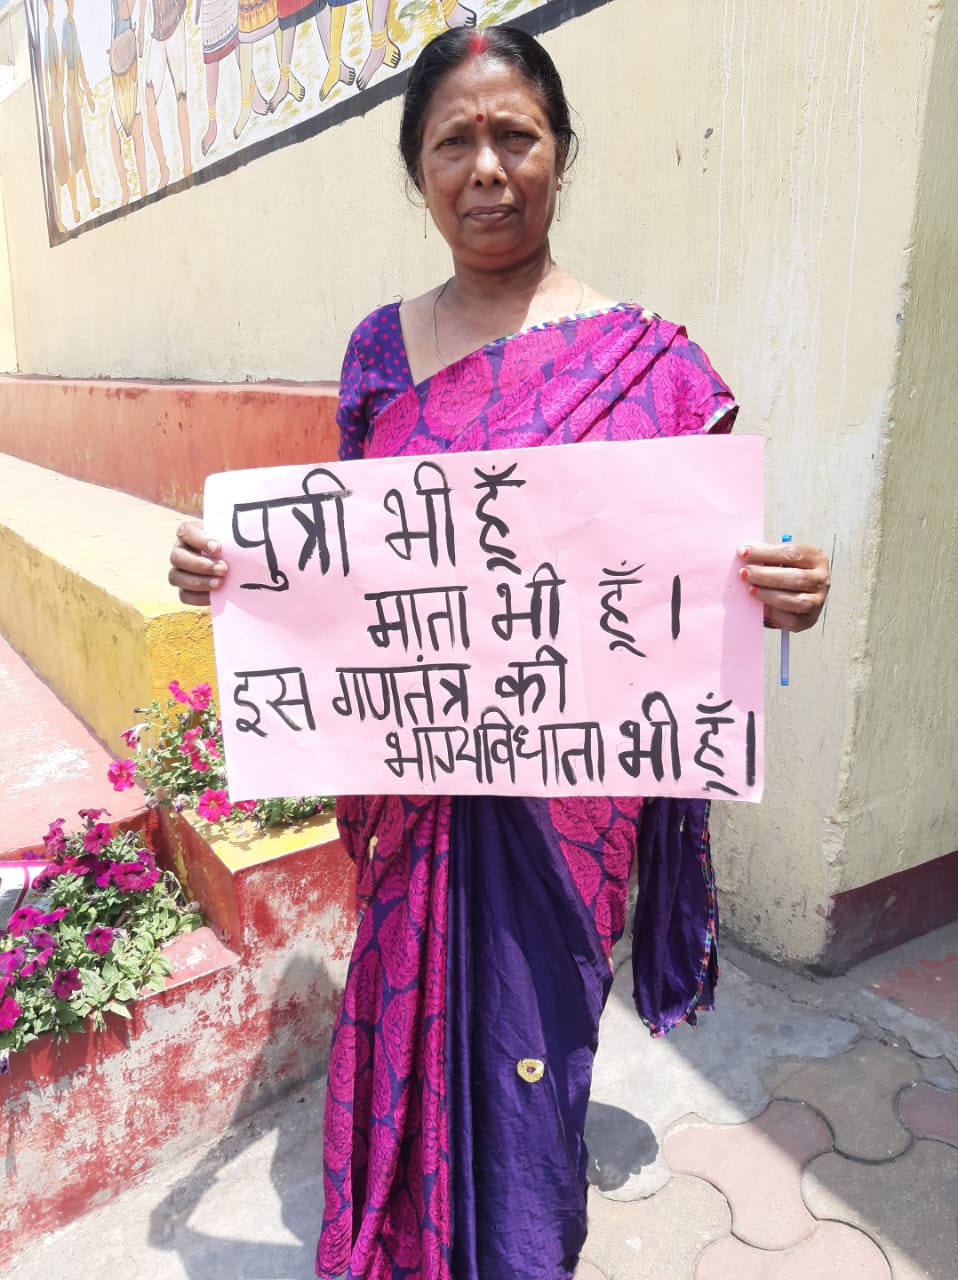 पुत्री भी हूँ
माता भी हूँ ।
इस गणतंत्र की
भाग्यविधाता भी हूँ।